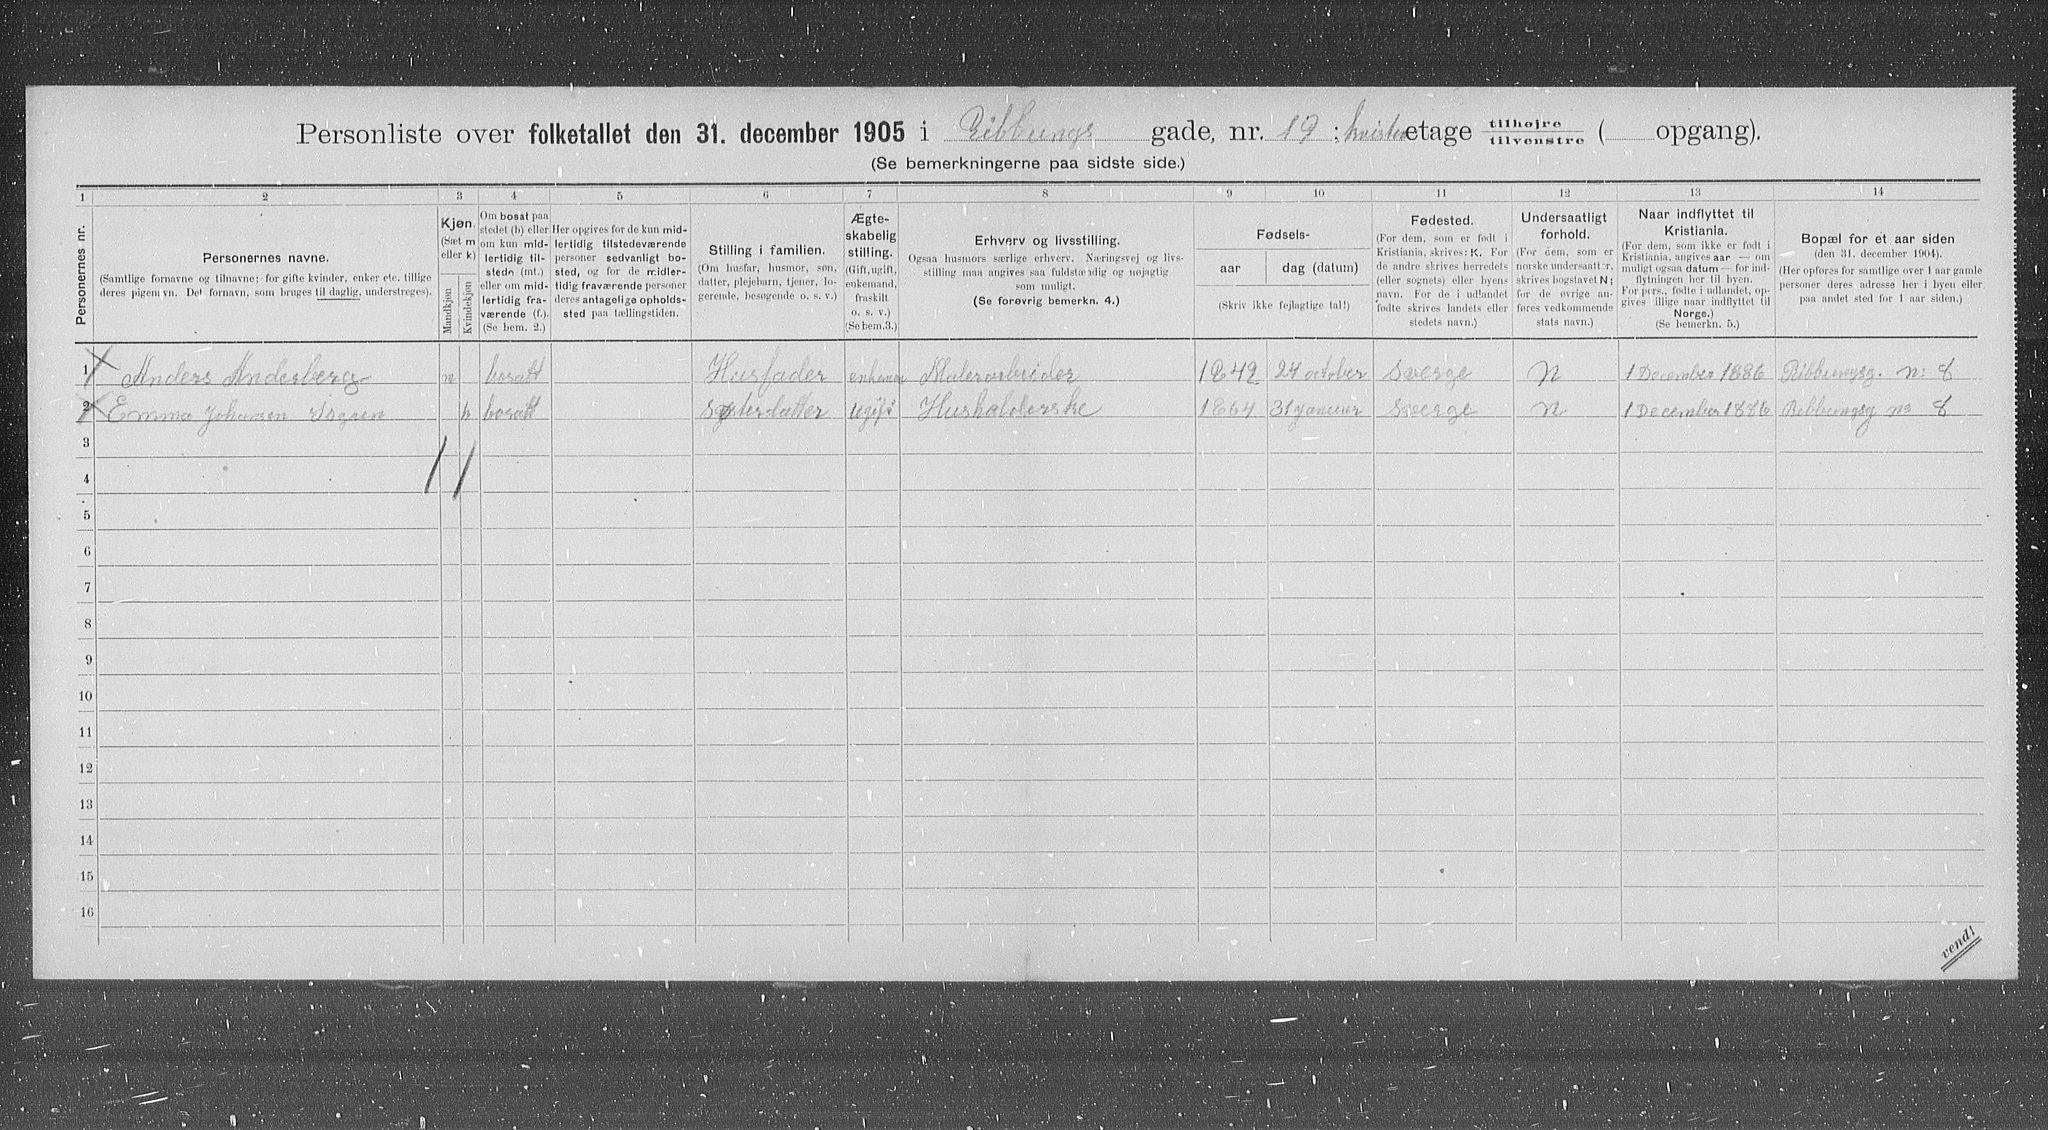 Personliste over folketallet den 31. december 1905 i Ribbungs gade, nr. 19 ; kvisten etage tilhøjre / tilvenstre ( opgang).
(Se bemerkningerne paa sidste side.)
1 2 3 4 5 6 7 8 9 10 11 12 13 14
Personernes nr.
Personernes navne.
(Samtlige fornavne og tilnavne; for gifte kvinder, enker etc. tillige
deres pigenavn. Det fornavn, som bruges til daglig, understreges).
Kjøn.
(Sæt m
eller k)
Mandkjøn
Kvindekjøn
Om bosat paa
stedet (b) eller
om kun mid-
lertidig til-
stede (mt.)
eller om mid-
lertidig fra-
værende (f.).
(Se bem. 2.)
Her opgives for de kun mid-
lertidig tilstedeværende
personer sedvanligt bo-
sted, og for de midler-
tidig fraværende personer
deres antagelige opholds-
sted paa tællingstiden.
Stilling i familien.
(Om husfar, husmor, søn,
datter, plejebarn, tjener, lo-
gerende, besøgende o. s. v.)
Ægte-
skabelig
stilling.
(Gift, ugift,
enkemand,
fraskilt
o. s. v.)
(Se bem.3.)
Erhverv og livsstilling.
Ogsaa husmors særlige erhverv. Næringsvej og livs-
stilling maa angives saa fuldstændig og nøjagtig
som muligt.
(Se forøvrig bemerkn. 4.)
Fødsels-
aar
dag (datum)
(Skriv ikke fejlagtige tal!)
Fødested.
(For dem, som er født i
Kristiania, skrives: K. For
de andre skrives herredets
(eller sognets) eller byens
navn. For de i udlandet
fødte skrives landets eller
stedets navn.)
Undersaatligt
forhold.
(For dem, som er
norske undersaatter,
skrives bogstavet N;
for de øvrige an-
føres vedkommende
stats navn.)
Naar indflyttet til
Kristiania.
(For dem, som ikke er født i
Kristiania, angives aar — om
muligt ogsaa datum — for ind-
flytningen her til byen.
For pers., født i udlandet, op-
gives tillige naar indflyttet til
Norge.)
(Se bemerkn. 5.)
Bopæl for et aar siden
(den 31. december 1904).
(Her opføres for samtlige over 1 aar gamle
personer deres adresse her i byen eller
paa andet sted for 1 aar siden.)
1 Anders Anderberg m bosatt Husfader enkeman Malerarbeider 1842 24 october Sverge N 1 December 1886 Ribbungsg. n: 8
2 Emma Johansen k bosatt Søsterdatter ugift Husholderske 1864 31 januar Sverge N 1 December 1886 Ribbungsg no 8
3
4
5
6
7
8
9
10
11
12
13
14
15
16
vend!